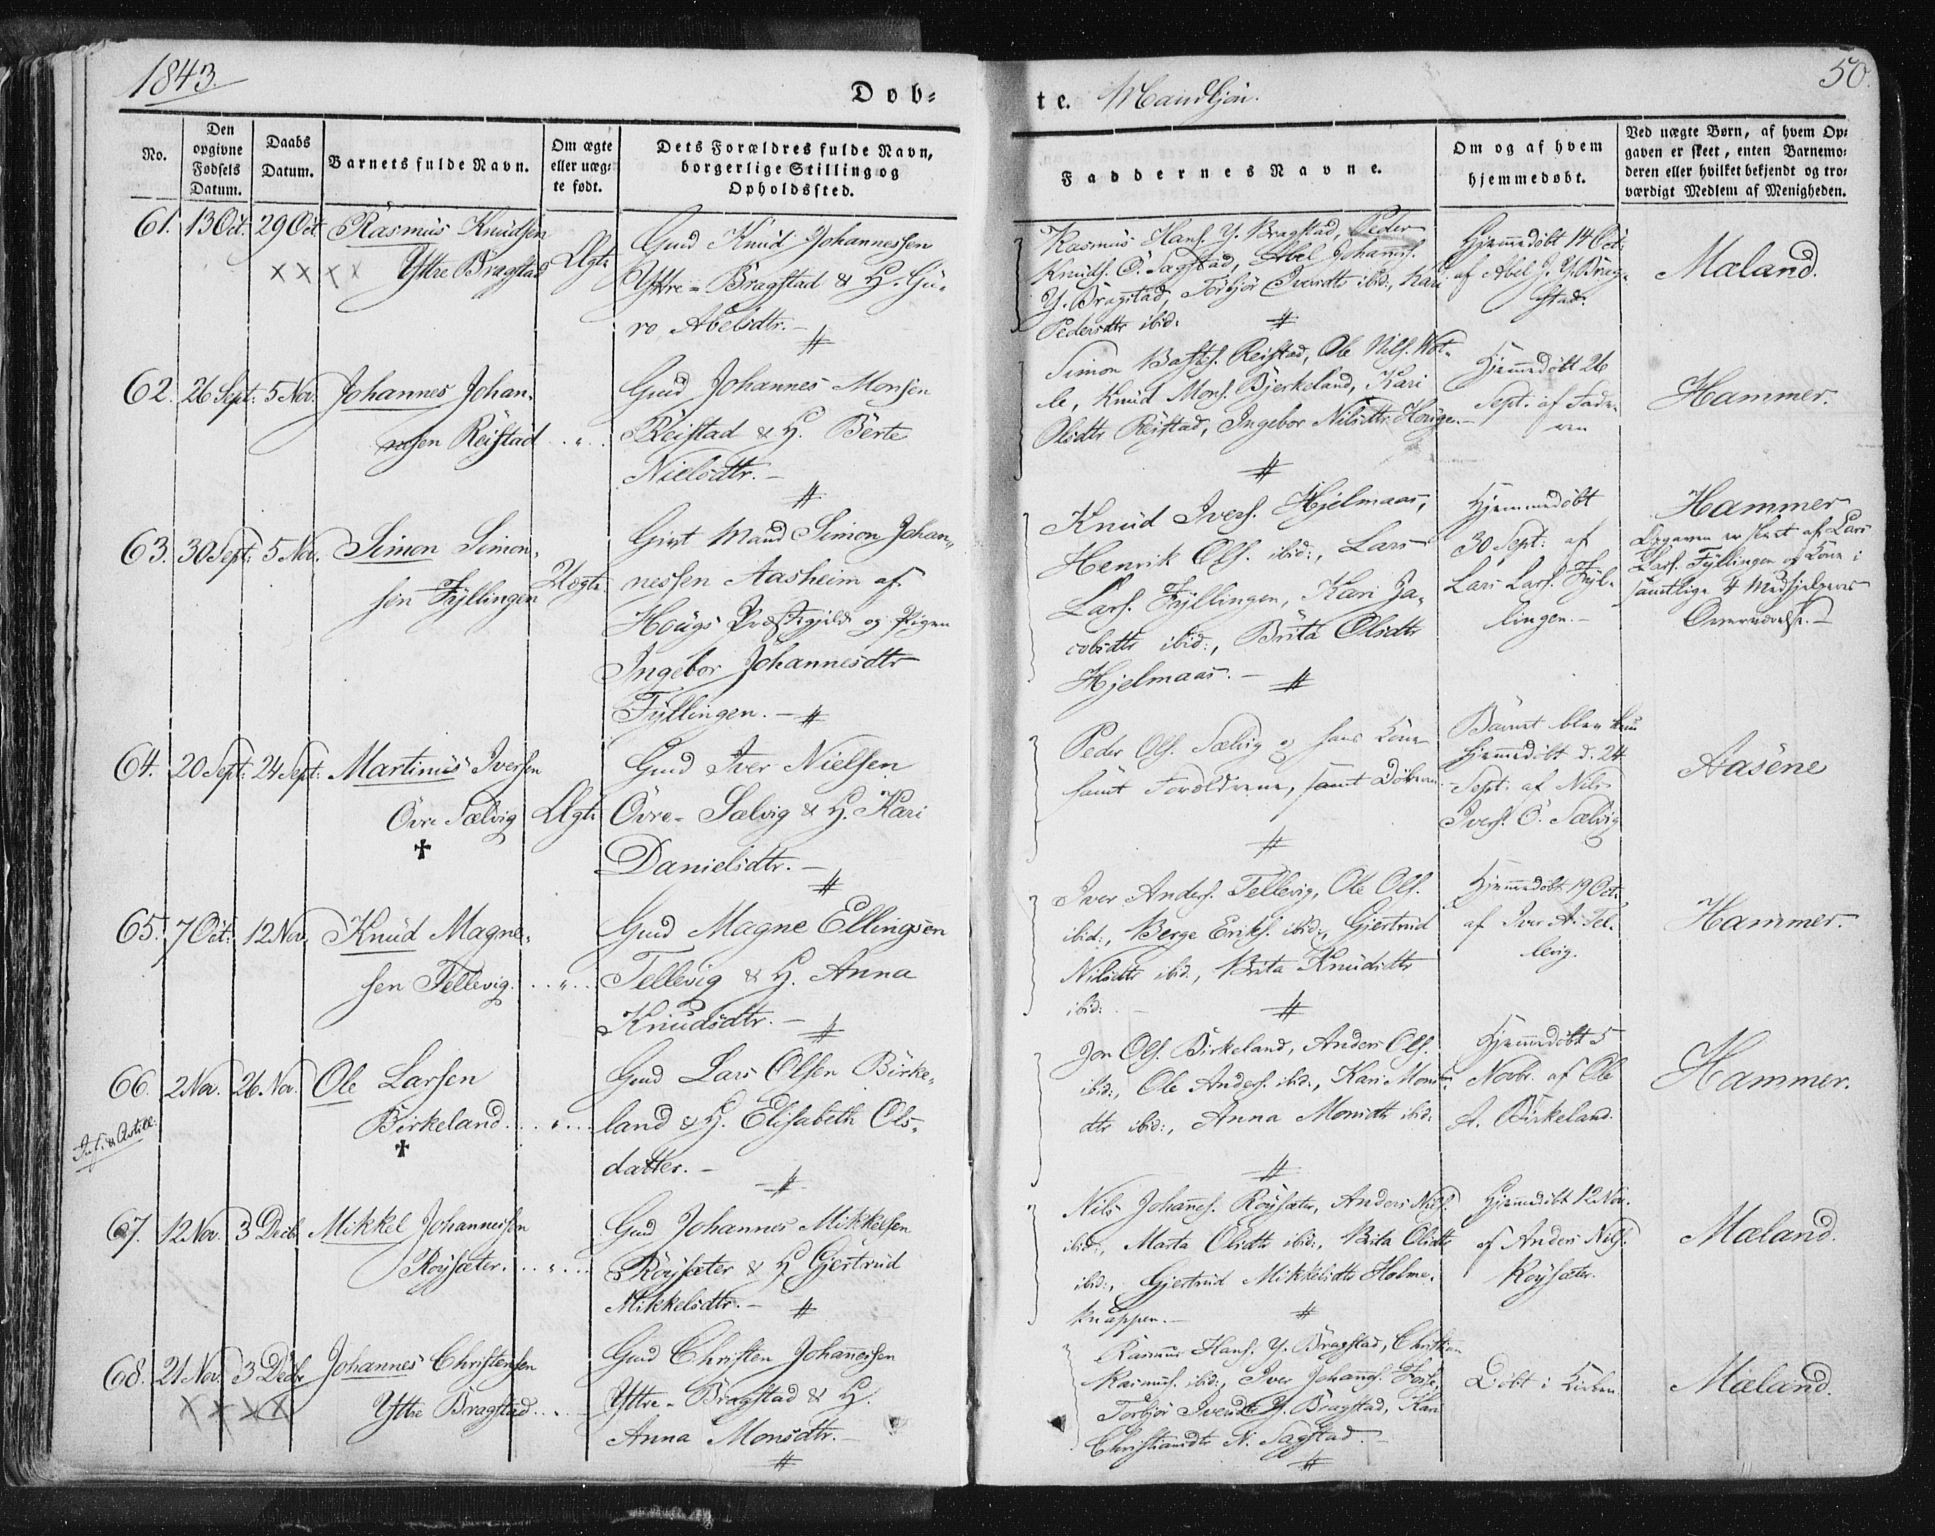 1843.
Døb-
te. Mandkjøn.
50.
No.
Den opgivne Fødsels Datum.
Daabs Datum.
Barnets fulde Navn.
Om ægte eller uæg- te født.
Dets Forældres fulde Navn, borgerlige Stilling og Opholdssted.
Faddernes Navne.
Om og af hvem hjemmedøbt.
Ved uægte Børn, af hvem Op- gaven er skeet, enten Barnemo- deren eller hvilket bekjendt og tro- værdigt Medlem af Menigheden.
61. 13 Oct. 29 Oct Rasmus Knudsen
Yttre Bragstad Ægte
Gmd Knud Johannessen
Yttre-Bragstad & H. Gu-
ro Abelsdtr.-
Rasmus Hans. Y. Bragstad, Peder
Knuds. Ö. Sagstad, Abel Johanns.
Y. Bragstad, Torbjör Iversdtr ibid:, Kari
Pedersdtr ibid:
Hjemmedöbt 14 Oct:
af Abel J. Y. Brag-
stad.
Mæland.
62. 26 Sept: 5 Nov. Johannes Johan-
nesen Reistad . . " . .
Gmd Johannes Monsen
Reistad & H. Berte
Nielsdtr.-
Simon Reistad, Ole Nils.
le, Knud Mons. Bjerkeland, Kari
Olsdtr Reistad, Ingebor Nilsdtr Hougen-
Hjemmedöbt 26
Sept: af Fade-
ren
Hammer.
63. 30 Sept: 5 Nov. Simon Simon-
sen Fyllingen Uægte
Gift Mand Simon Johan-
nessen Aasheim af
Hougs Præstegjeld og Pigen
Ingebor Johannesdtr
Fyllingen.-
Knud Ivers. Hjelmaas,
Henrik Ols. ibid:, Lars
Lars. Fyllingen, Kari Ja-
cobsdtr ibid:, Brita Olsdtr
Hjelmaas.-
Hjemmedöbt
30 Sept: af
Lars Lars. Fyl-
lingen.-
Hammer
Opgaven er skeet af Lars
Lars. Fyllingen og Kone i
samtlige 4 Medhjelperes
Overværelse.-
64. 20 Sept: 24 Sept: Martinus Iversen
Övre Sælvig Ægte
†
Gmd Iver Nielsen
Övre-Sælvig & H. Kari
Danielsdtr.-
Peder Ols. Sælvig og hans Kone
samt Forældrene, samt Döberen
Barnet blev kun
hjemmedöbt d. 24
Sept: af Nils
Ivers. Ö. Sælvig
Aasene
65. 7 Oct: 12 Nov. Knud Magne-
sen Tellevig. . . " . .
Gmd Magne Ellingsen
Tellevig & H. Anna
Knudsdtr.-
Iver Anders. Tellevig, Ole Ols.
ibid:, Berge Eriks. ibid:, Gjertrud
Nilsdtr ibid:, Brita Knudsdtr
ibid:
Hjemmedöbt 19 Oct:
af Iver A. Tel-
levig.
Hammer.
66. 2 Nov. 26 Nov. Ole Larsen
Birkeland. . . " . .
†
Gmd Lars Olsen Birke-
land & H. Elisabeth Ols-
datter.-
Jon Ols. Birkeland, Anders Ols.
ibid:, Ole Anders. ibid:, Kari Mons-
dtr ibid:, Anna Monsdtr ibid:
Hjemmedöbt 5
Novbr. af Ole
A. Birkeland.
Hammer.
67. 12 Nov. 3 Decb. Mikkel Johannessen
Röysæter. . . " . .
Gmd Johannes Mikkelsen
Röysæter & H Gjertrud
Mikkelsdtr.-
Nils Johanns. Röysæter, Anders Nils.
ibid:, Marta Olsdtr ibid:, Brita Olsdtr
ibid:, Gjertrud Mikkelsdtr Holme-
knappen.-
Hjemmedöbt 12 Nov.
af Anders Nils.
Röysæter.
Mæland.
68. 21 Nov. 3 Decb Johannes Christensen
Yttre Bragstad. . .
Gmd Christen Johannessen
Yttre-Bragstad & H.
Anna Monsdtr.-
Rasmus Hans. Y. Bragstad, Christen
Rasmus. ibid:, Iver Johanns.
Torbjör Iversdtr Y. Bragstad, Kari
Christiansdtr N. Sagstad.-
Döbt i Kirken
Mæland.